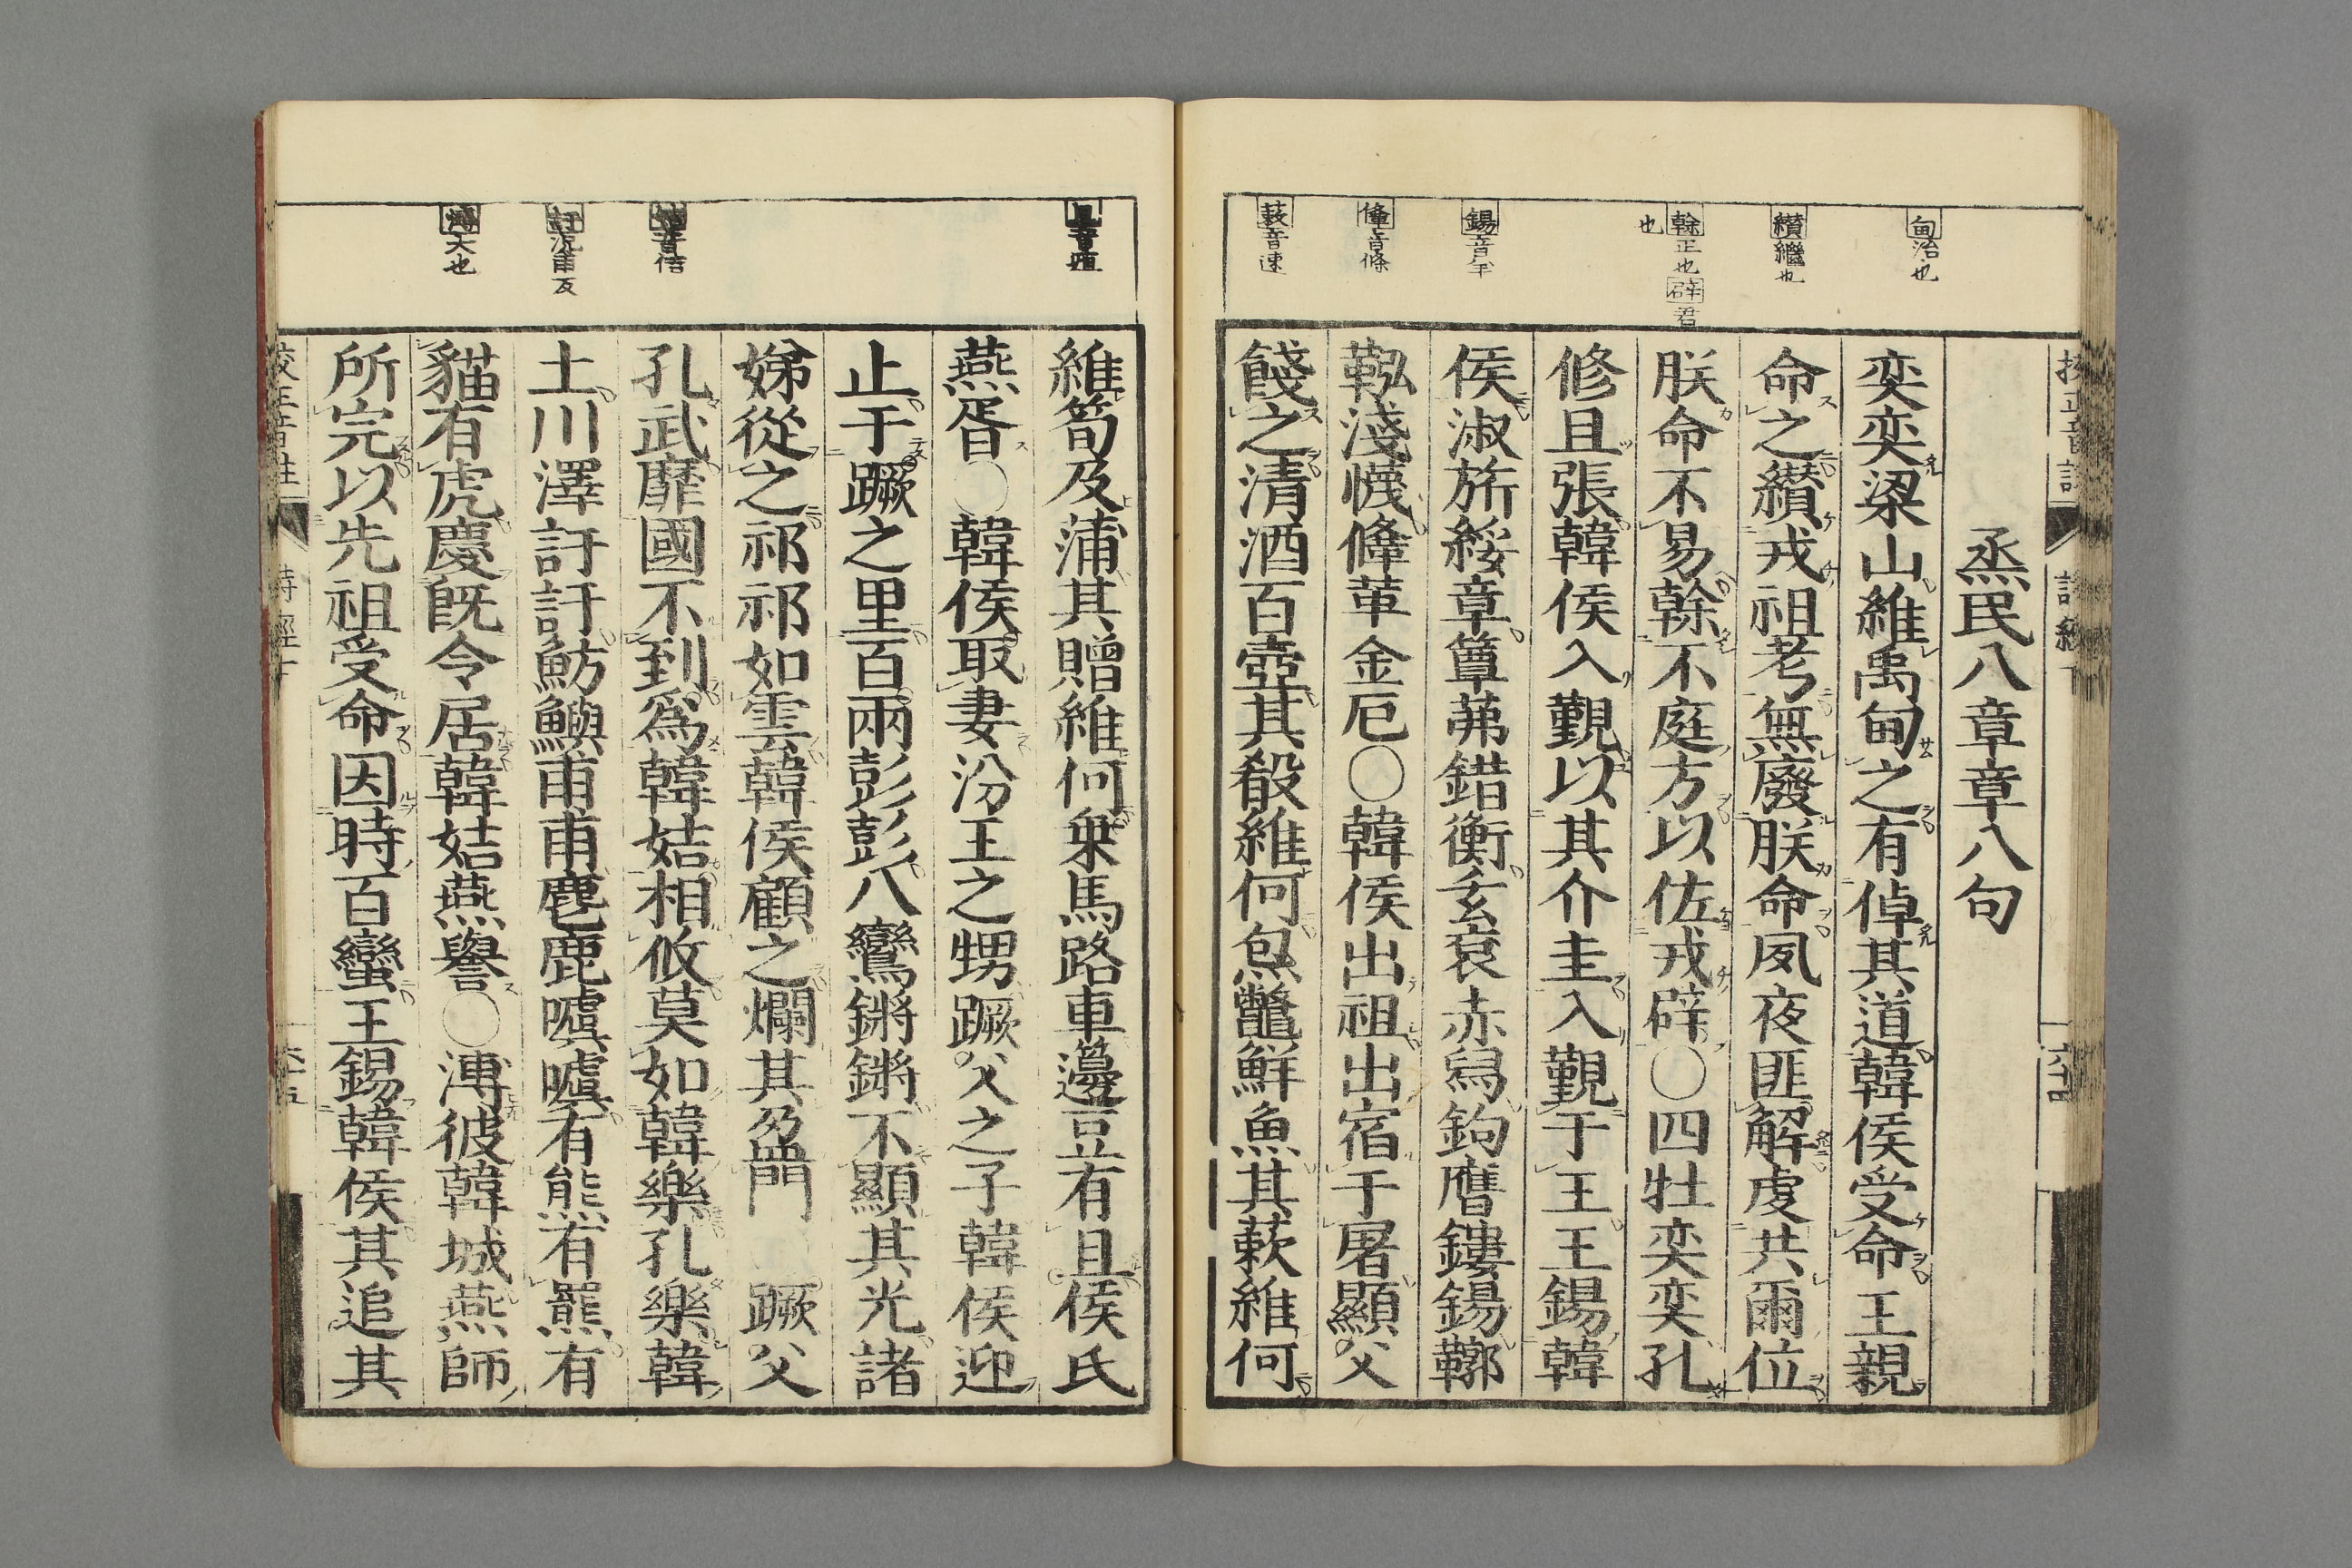 甸治也
纉繼也
榦正也辟君
也
鍚音羊
鞗音條
蔌音速
烝民八章章八句
奕奕梁山維禹甸之有倬其道韓侯受命王親
命之纉戎祖考無廢朕命夙夜匪解虔共爾位
朕命不易榦不庭方以佐戎辟〇四牡奕奕孔
修且張韓侯入覲以其介圭入覲于王王錫韓
侯淑旂綏章簟茀錯衡玄袞赤舄鉤膺鏤鍚鞹
鞃淺幭鞗革金厄〇韓侯出祖出宿于屠顯父
餞之清酒百壺其殽維何炰鼈鮮魚其蔌維何
且音疽
姞音佶
訏況甫反
溥大也
維筍及蒲其贈維何乗馬路車籩豆有且侯氏
燕胥〇韓侯取妻汾王之甥蹶父之子韓侯迎
止于蹶之里百兩彭彭八鸞鏘鏘不顯其光諸
娣從之祁祁如雲韓侯顧之爛其盈門 蹶父
孔武靡國不到爲韓姞相攸莫如韓樂孔樂韓
土川澤訏訏魴鱮甫甫麀鹿噳噳有熊有羆有
貓有虎慶旣令居韓姞燕譽〇溥彼韓城燕師
所完以先祖受命因時百蠻王錫韓侯其追其